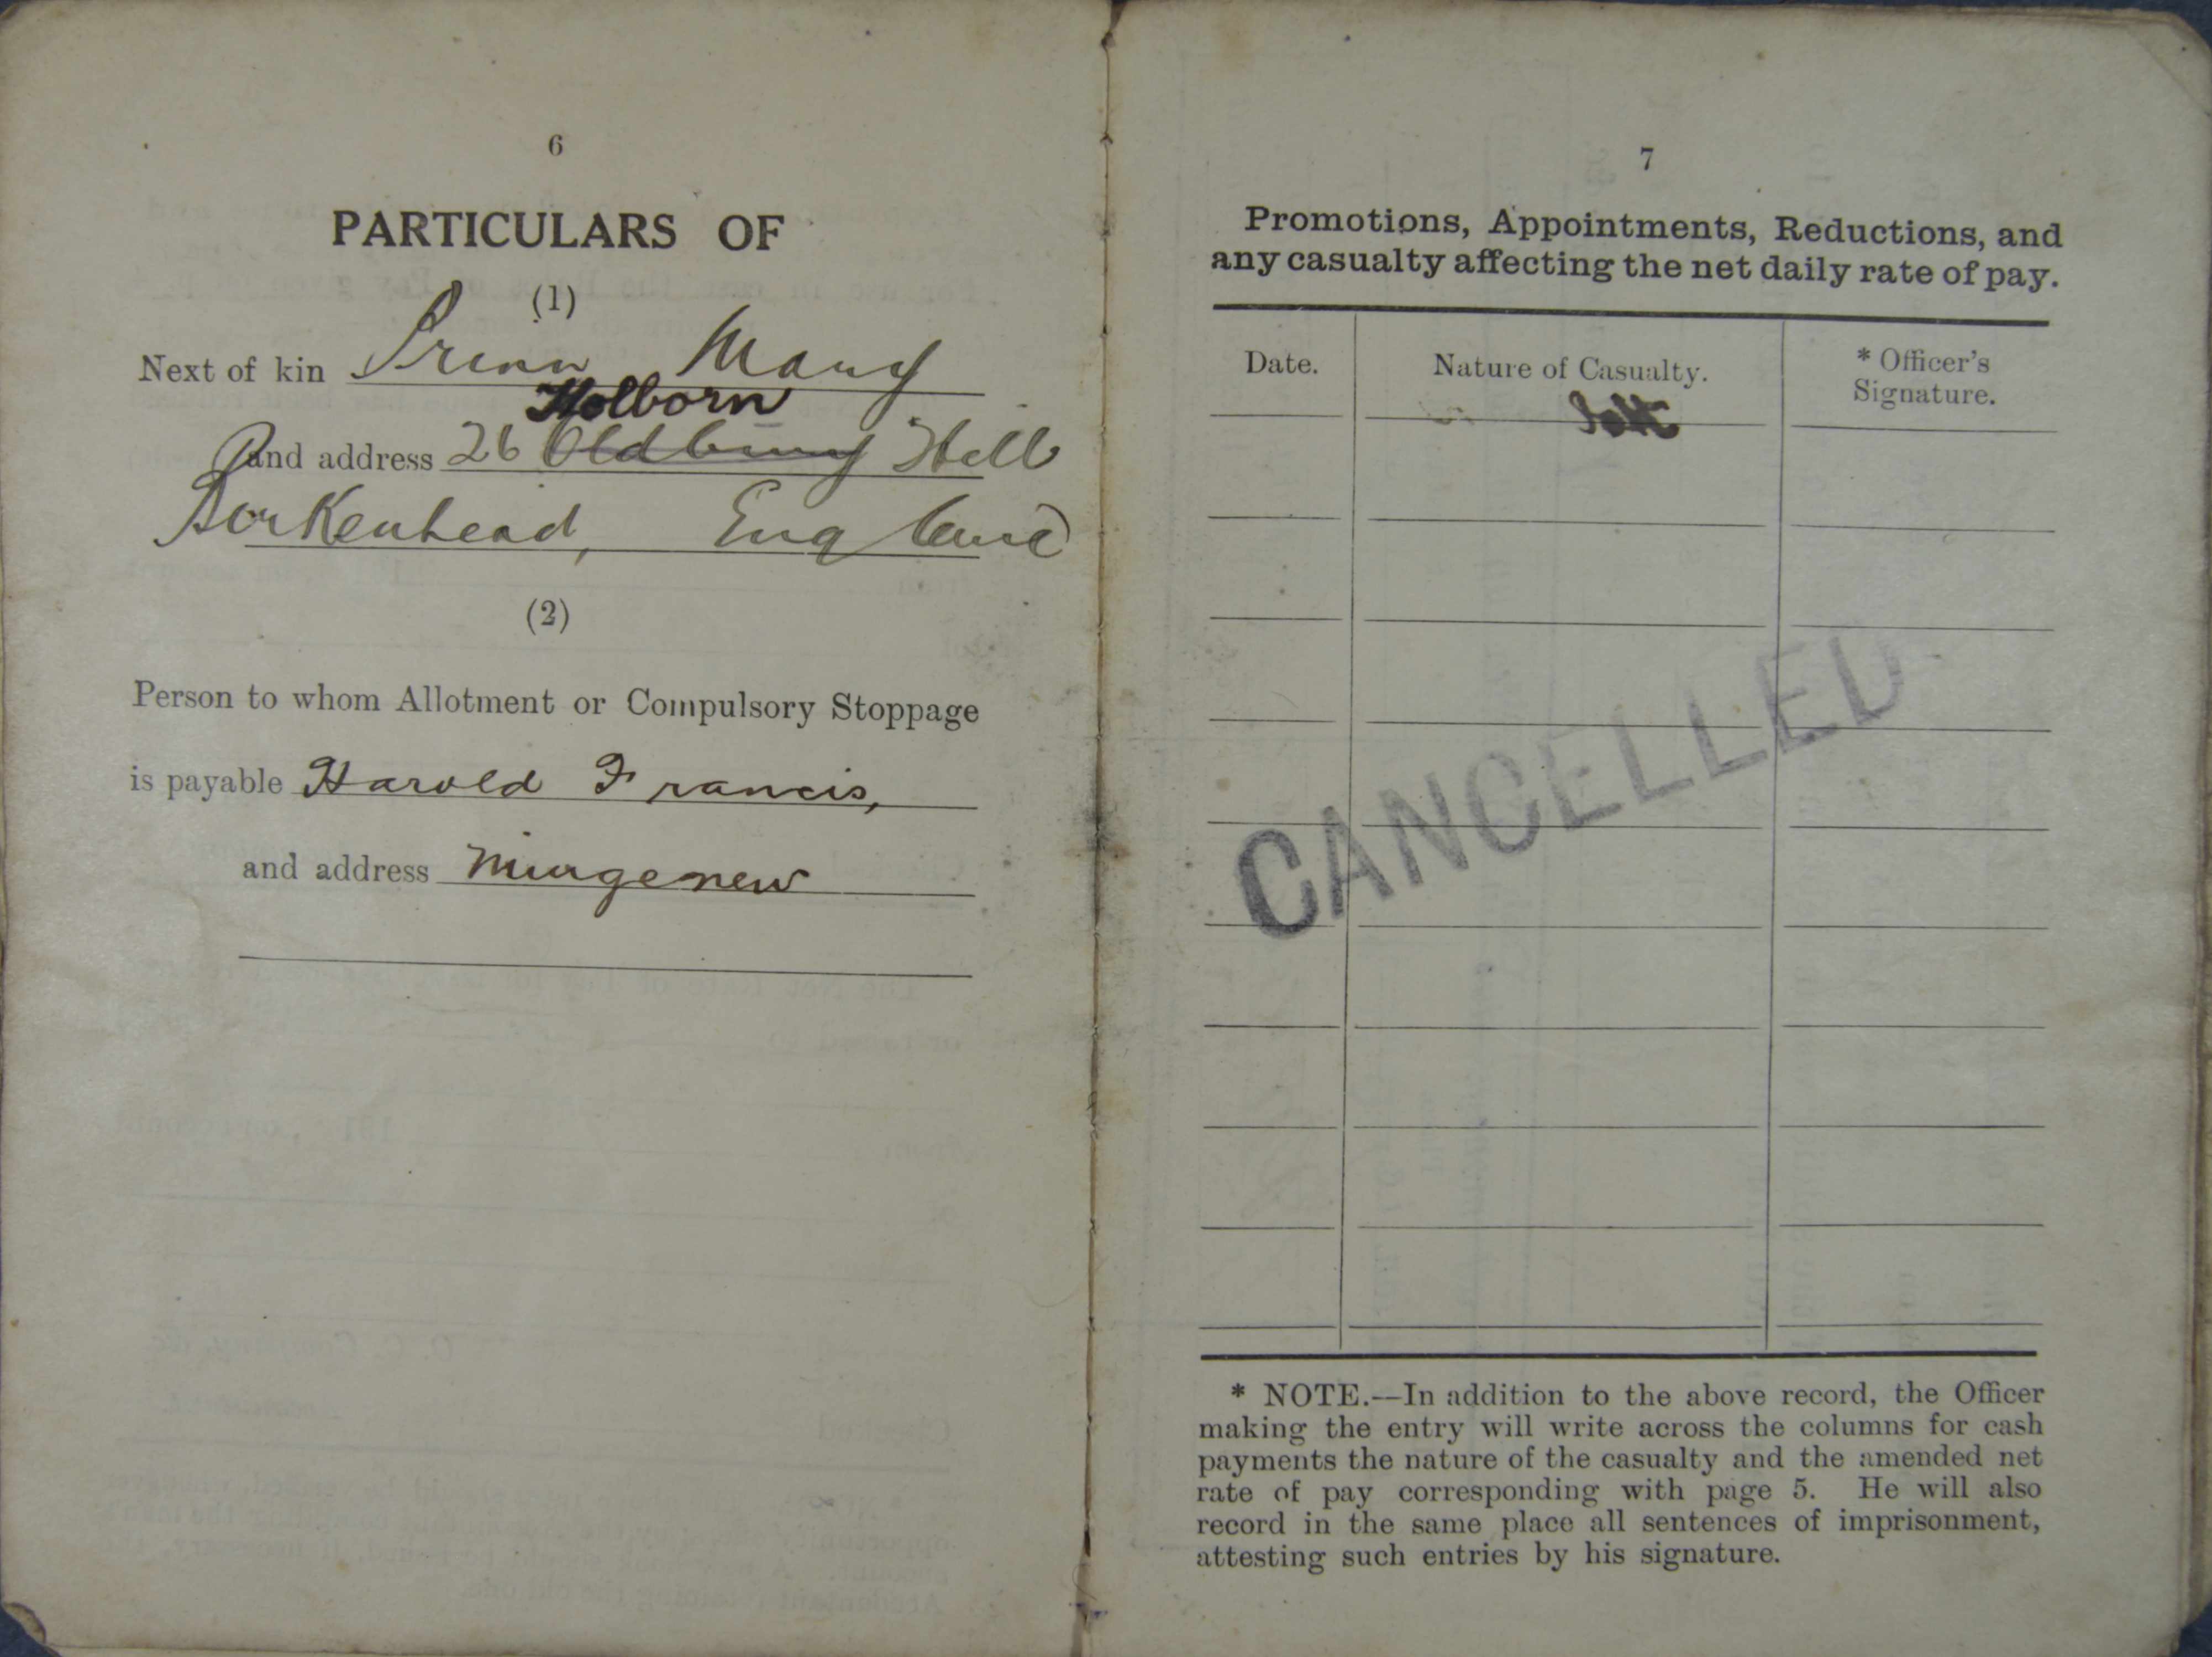 6
PARTICULARS OF
(1)
Next of kin Prinn Mary
Holborn
and address 26 Oldbury Hill
Birkenhead, England
(2)
Person to whom Allotment or Compulsory Stoppage
is payable Harold Francis,
and address Mingenew
7
Promotions, Appointments, Reductions, and
any casualty affecting the net daily rate of pay.
Date. Nature of Casualty. * Officer's Signature.
CANCELLED
* NOTE.—In addition to the above record, the Officer
making the entry will write across the columns for cash
payments the nature of the casualty and the amended net
rate of pay corresponding with page 5. He will also
record in the same place all sentences of imprisonment,
attesting such entries by his signature.